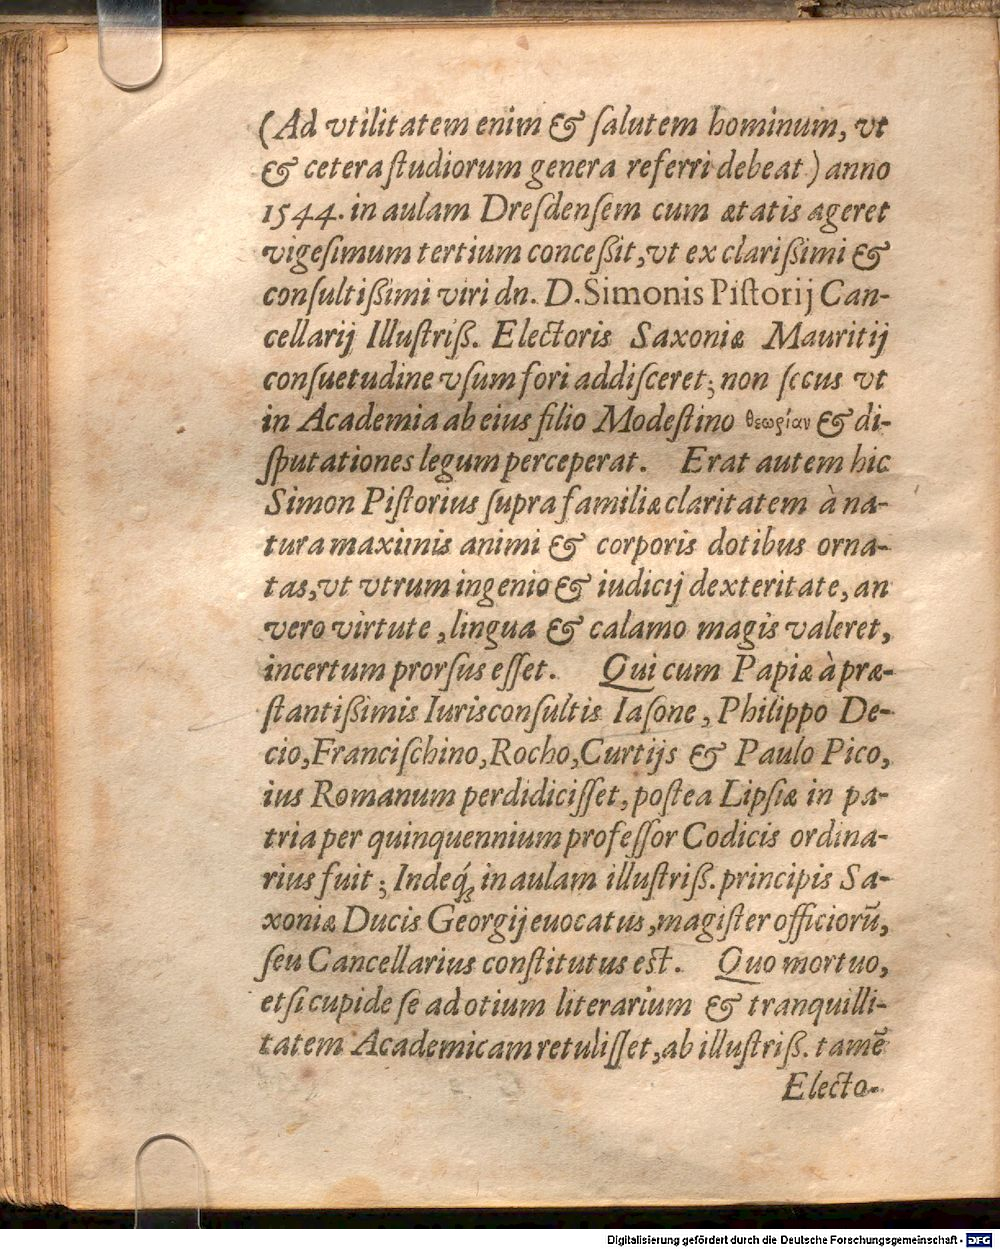 (Ad vtilitatem enim & ſalutem hominum, vt
& cetera ſtudiorum genera referri debeat) anno
1544. in aulam Dreſdenſem cum ætatis ageret
vigeſimum tertium conceßit, vt ex clarißimi &
conſultißimi viri dn. D. Simonis Piſtorij Can-
cellarij Illuſtriß. Electoris Saxoniæ Mauritij
conſuetudine vſum fori addiſceret; non ſecus vt
in Academia ab eius filio Modeſtino θεωρίαν & di-
ſputationes legum perceperat. Erat autem hic
Simon Piſtorius ſupra familiæ claritatem à na-
tura maximis animi & corporis dotibus orna-
tas, vt vtrum ingenio & iudicij dexteritate, an
vero virtute, lingua & calamo magis valeret,
incertum prorſus eſſet. Qui cum Papiæ à præ-
ſtantißimis Iurisconſultis Iaſone, Philippo De-
cio, Franciſchino, Rocho, Curtijs & Paulo Pico,
ius Romanum perdidiciſſet, poſtea Lipſiæ in pa-
tria per quinquennium profeſſor Codicis ordina-
rius fuit; Indeq́; in aulam illuſtriß. principis Sa-
xoniæ Ducis Georgij euocatus, magiſter officiorũ,
ſeu Cancellarius conſtitutus eſt. Quo mortuo,
etſi cupide ſe ad otium literarium & tranquilli-
tatem Academicam retuliſſet, ab illuſtriß. tamẽ
Electo-
Digitalisierung gefördert durch die Deutsche Forschungsgemeinschaft - DFG